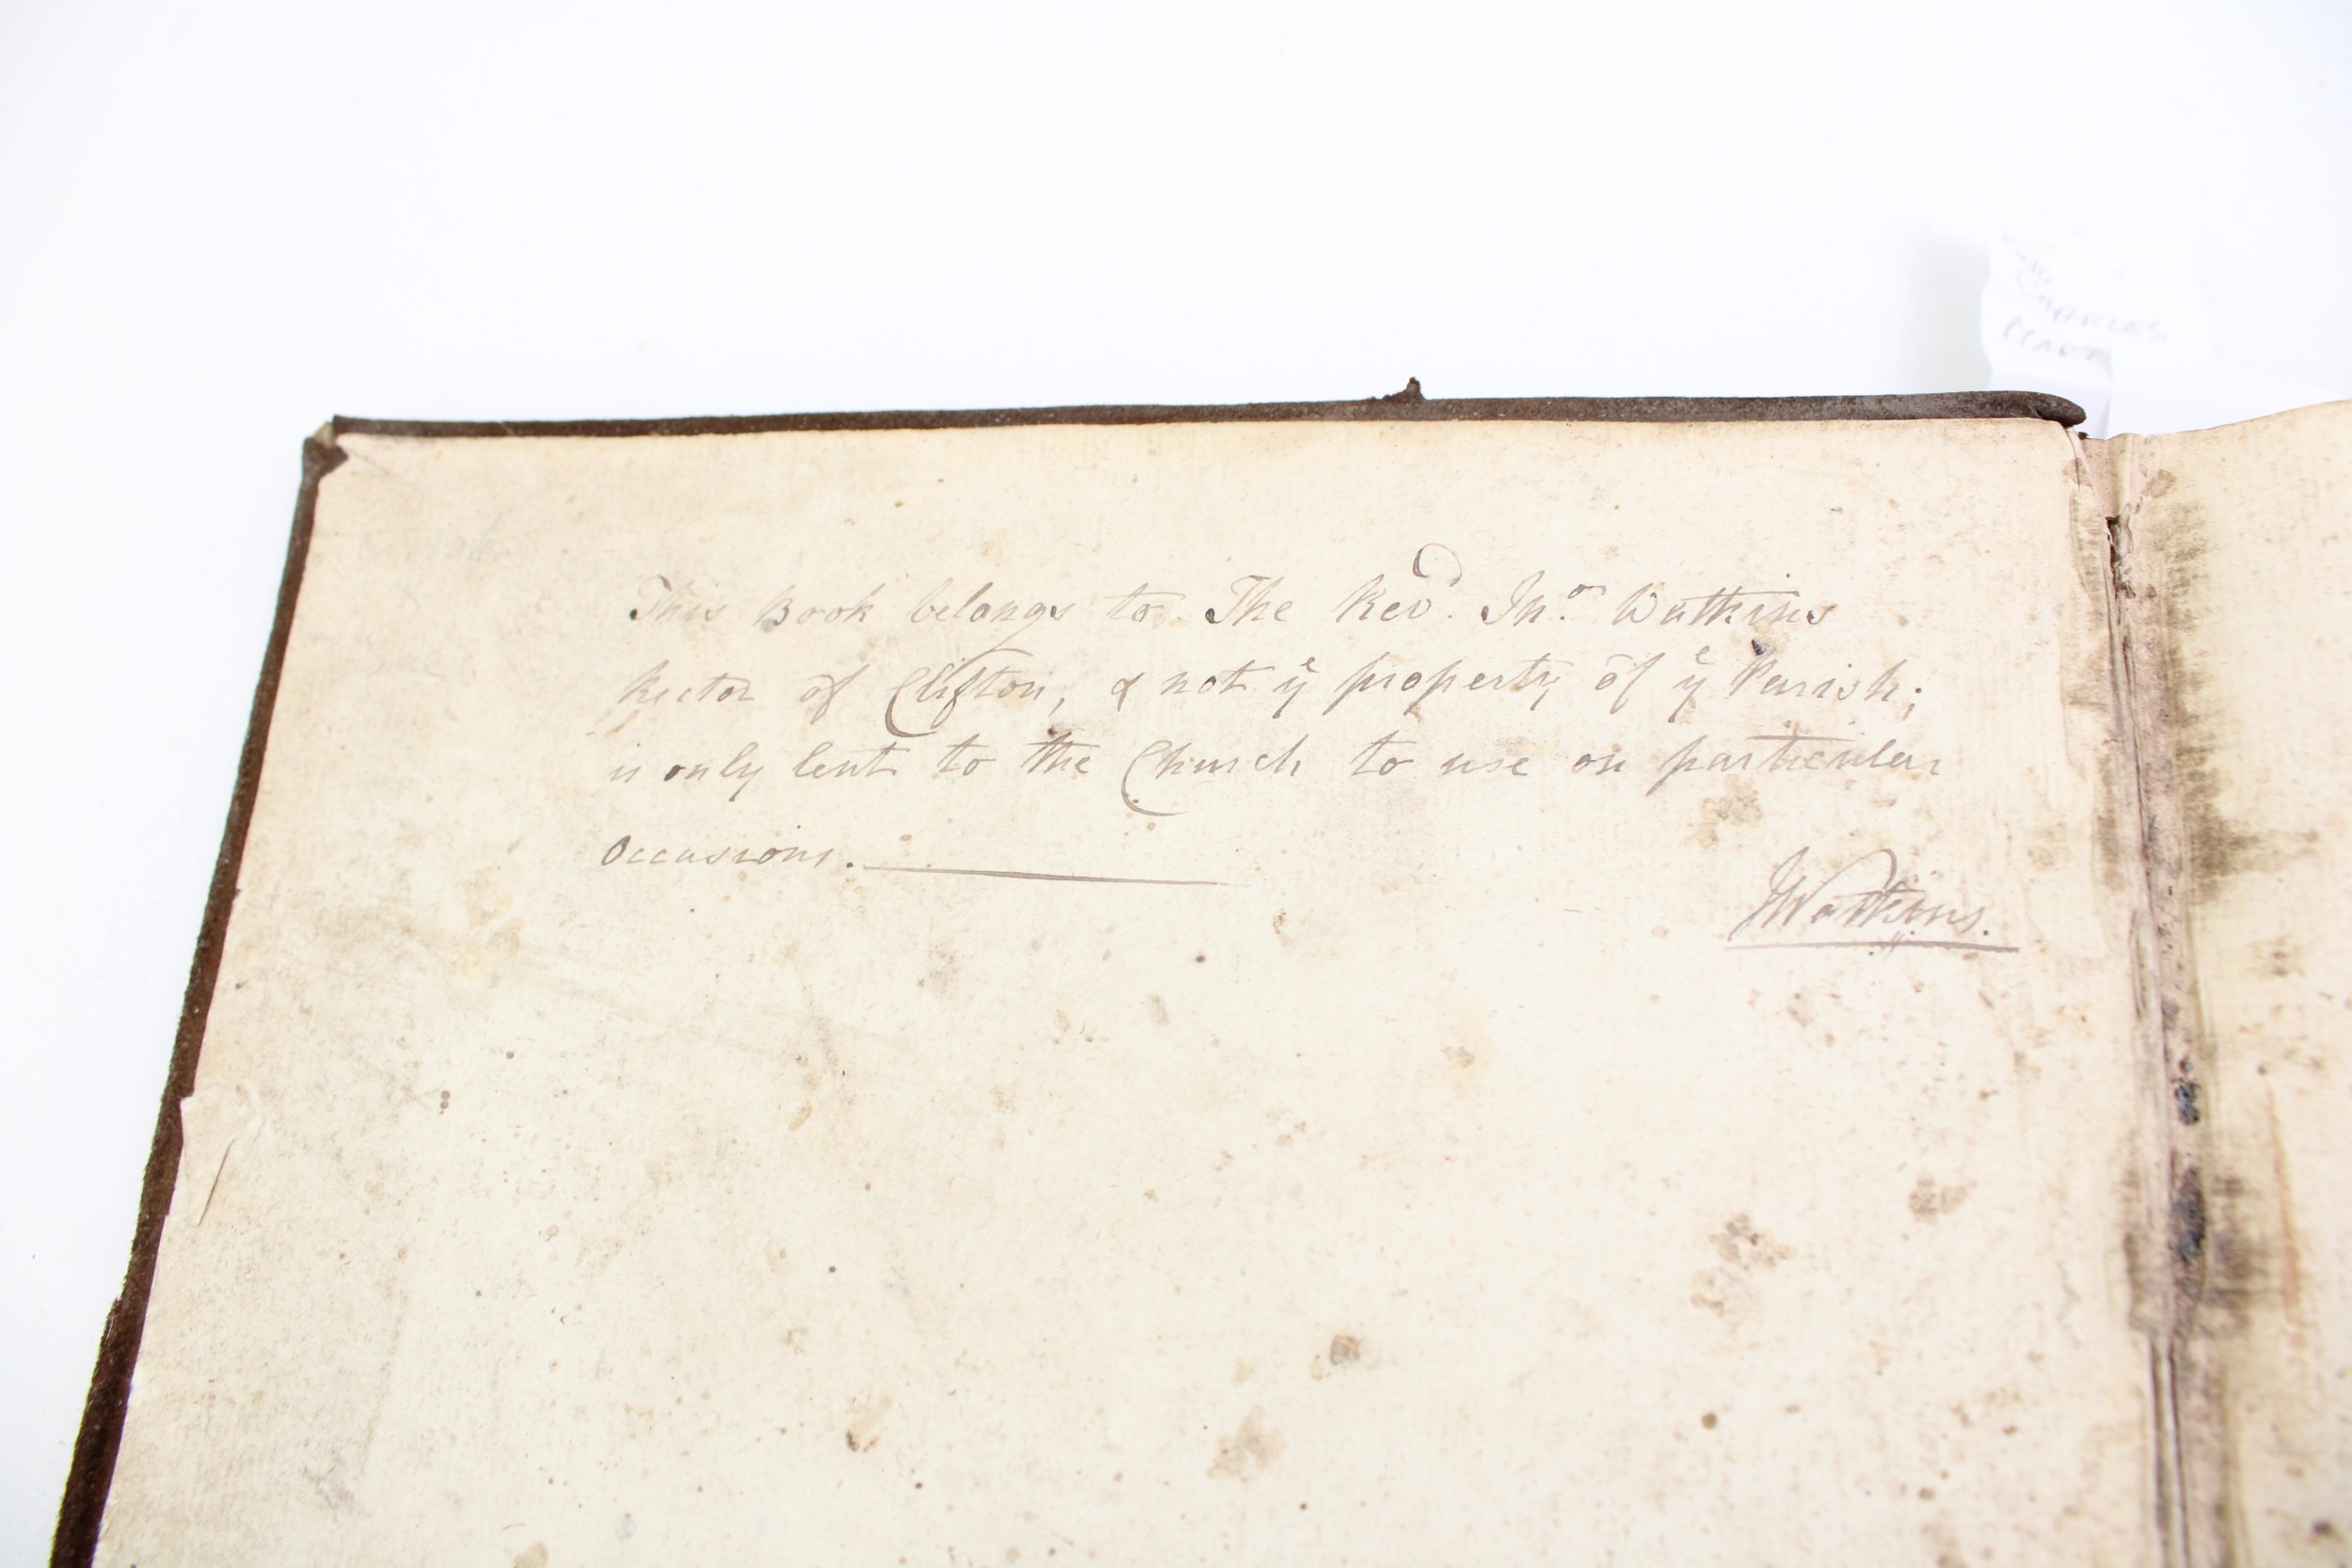 This Book belongs to The Revd. Jno. Watkins
Rector of Clifton, & not ye property of ye Parish;
is only lent to the Church to use on particular
Occasions.
JWatkins.